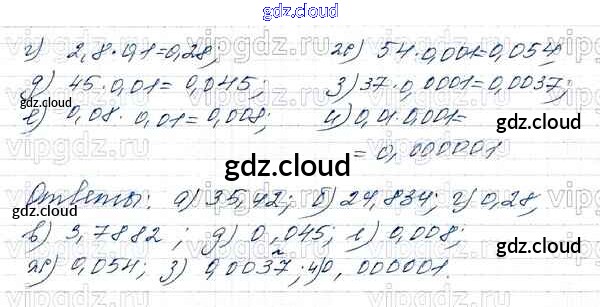 gdz.cloud
г) 2,8 · 0,1 = 0,28; ж) 54 · 0,001 = 0,054;
д) 45 · 0,01 = 0,045; з) 37 · 0,0001 = 0,0037;
е) 0,08 · 0,01 = 0,008; и) 0,01 · 0,001 =
= 0,000001
gdz.cloud
gdz.cloud
gdz.cloud
Ответы: а) 35,42; б) 24,834; г) 0,28,
в) 3,7882; д) 0,045; е) 0,008;
ж) 0,054; з) 0,0037; и) 0,000001.
gdz.cloud
gdz.cloud
gdz.cloud